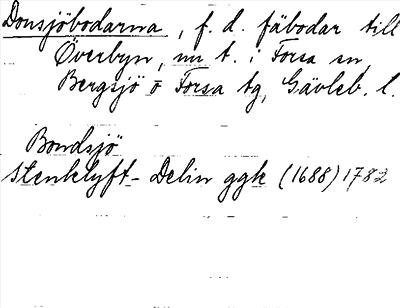 Donsjöbodarna, f. d. fäbodar till
Överbyn, nr t. i Forsa sn,
Bergsjö o Forsa tg, Gävleb. l.
Bondsjö
Stenklyft - Delin ggk (1688) 1782